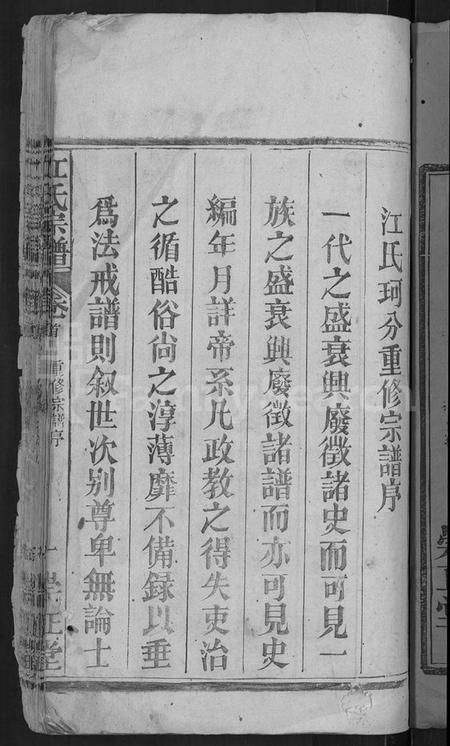 江氏珂分重修宗譜序
一代之盛衰興廢徵諸史而可見一
族之盛衰興廢徵諸譜而亦可見史
編年月詳帝系凡政教之得失吏治
之循酷俗尚之淳薄靡不備録以垂
爲法戒譜則叙世次别尊卑無論士
江氏宗譜 卷首 重修宗譜序 一 崇正堂